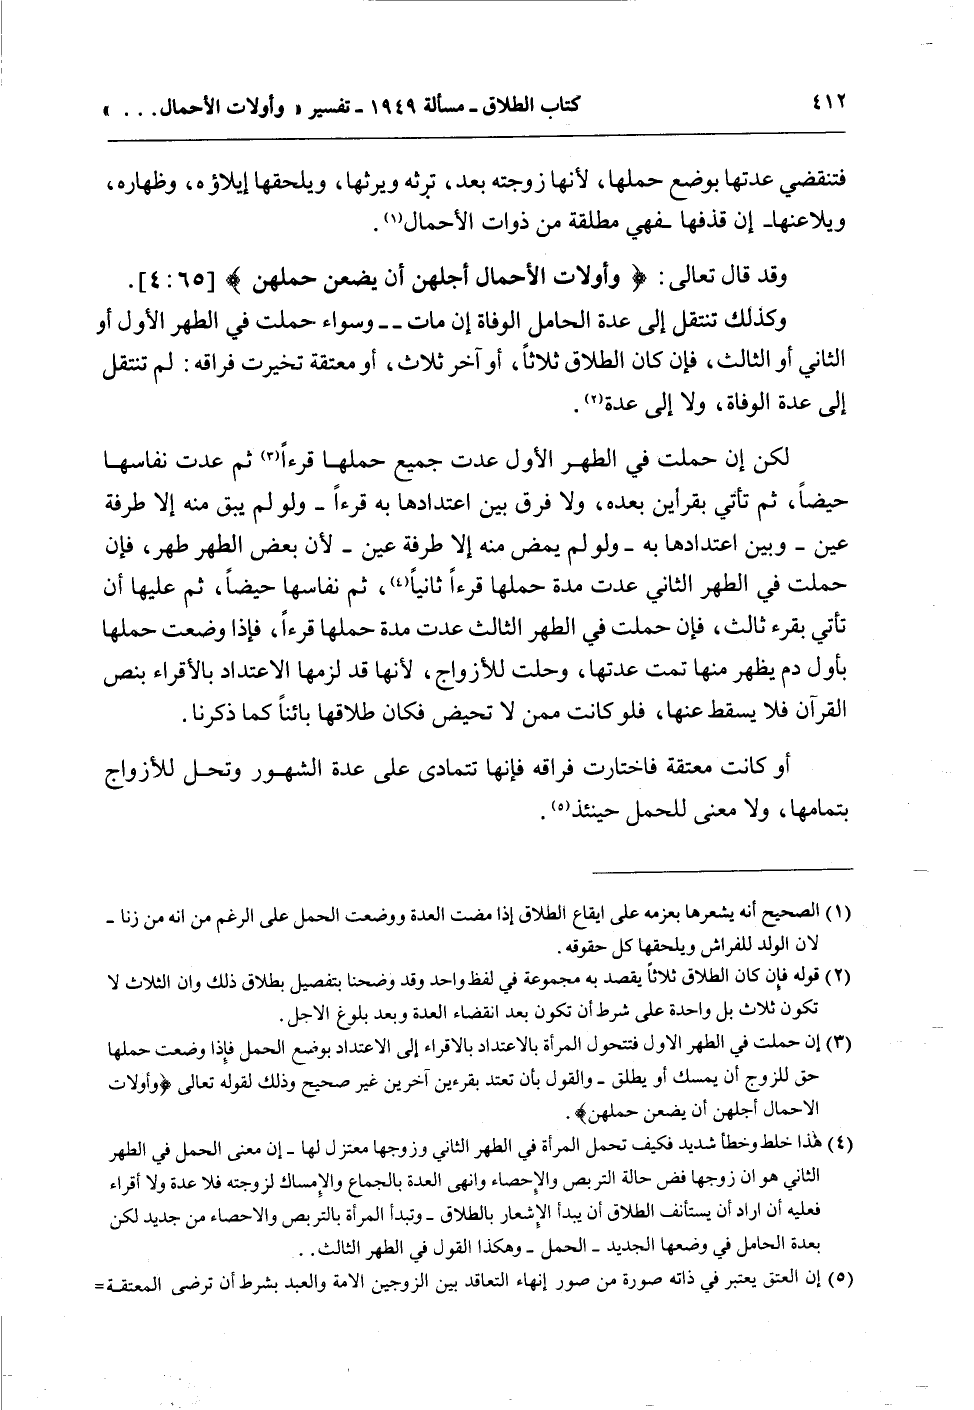 ٤١٢
كتاب الطلاق ـ مسألة ١٩٤٩ ـ تفسير « وأولات الأحمال . . . »
فتنقضي عدتها بوضع حملها، لأنها زوجته بعد، ترثه ويرثها، ويلحقها إيلاؤه، وظهاره،
ويلاعنها ـ إن قذفها ـ فهي مطلقة من ذوات الأحمال(١).
وقد قال تعالى: ﴿ وأولات الأحمال أجلهن أن يضعن حملهن ﴾ [٦٥: ٤].
وكذلك تنتقل إلى عدة الحامل الوفاة إن مات ــ وسواء حملت في الطهر الأول أو
الثاني أو الثالث، فإن كان الطلاق ثلاثاً، أو آخر ثلاث، أو معتقة تخيرت فراقه: لم تنتقل
إلى عدة الوفاة، ولا إلى عدة(٢).
لكن إن حملت في الطهر الأول عدت جميع حملها قرءاً(٣) ثم عدت نفاسها
حيضاً، ثم تأتي بقرأين بعده، ولا فرق بين اعتدادها به قرءاً ـ ولو لم يبق منه إلا طرفة
عين ـ وبين اعتدادها به ـ ولو لم يمض منه إلا طرفة عين ـ لأن بعض الطهر طهر، فإن
حملت في الطهر الثاني عدت مدة حملها قرءاً ثانياً(٤)، ثم نفاسها حيضاً، ثم عليها أن
تأتي بقرء ثالث، فإن حملت في الطهر الثالث عدت مدة حملها قرءاً، فإذا وضعت حملها
بأول دم يظهر منها تمت عدتها، وحلت للأزواج، لأنها قد لزمها الاعتداد بالأقراء بنص
القرآن فلا يسقط عنها، فلو كانت ممن لا تحيض فكان طلاقها بائناً كما ذكرنا.
أو كانت معتقة فاختارت فراقه فإنها تتمادى على عدة الشهور وتحل للأزواج
بتمامها، ولا معنى للحمل حينئذ(٥).
(١) الصحيح أنه يشعرها بعزمه على ايقاع الطلاق إذا مضت العدة ووضعت الحمل على الرغم من انه من زنا ـ
لان الولد للفراش ويلحقها كل حقوقه.
(٢) قوله فإن كان الطلاق ثلاثاً يقصد به مجموعة في لفظ واحد وقد وضحنا بتفصيل بطلاق ذلك وان الثلاث لا
تكون ثلاث بل واحدة على شرط أن تكون بعد انقضاء العدة وبعد بلوغ الاجل.
(٣) إن حملت في الطهر الاول فتتحول المرأة بالاعتداد بالاقراء إلى الاعتداد بوضع الحمل فإذا وضعت حملها
حق للزوج أن يمسك أو يطلق ـ والقول بأن تعتد بقرءين آخرين غير صحيح وذلك لقوله تعالى ﴿وأولات
الاحمال أجلهن أن يضعن حملهن﴾.
(٤) هٰذا خلط وخطأ شديد فكيف تحمل المرأة في الطهر الثاني وزوجها معتزل لها ـ إن معنى الحمل في الطهر
الثاني هو ان زوجها فض حالة التربص والإحصاء وانهى العدة بالجماع والإمساك لزوجته فلا عدة ولا أقراء
فعليه أن اراد أن يستأنف الطلاق أن يبدأ الإشعار بالطلاق ـ وتبدأ المرأة بالتربص والاحصاء من جديد لكن
بعدة الحامل في وضعها الجديد ـ الحمل ـ وهكذا القول في الطهر الثالث. .
(٥) إن العتق يعتبر في ذاته صورة من صور إنهاء التعاقد بين الزوجين الامة والعبد بشرط أن ترضى المعتقة=